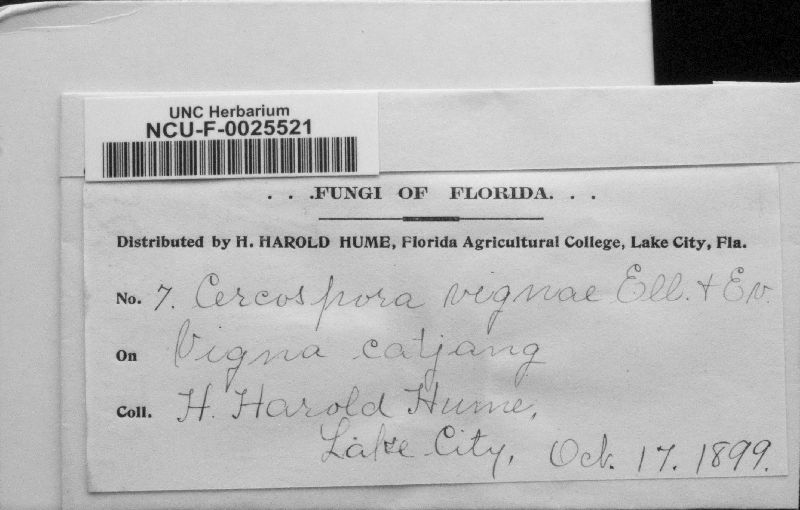 UNC Herbarium
NCU-F-0025521
. . .FUNGI OF FLORIDA. . .
Distributed by H. HAROLD HUME, Florida Agricultural College, Lake City, Fla.
No. 7. Cercospora vignae Ell. + Ev.
On Vigna catjang
Coll. H. Harold Hume,
Lake City, Oct. 17. 1899.